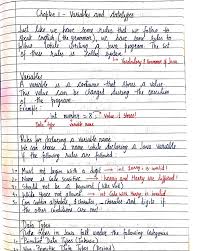 Chapter 1 - Variables and Datatypes
Just like we have some rules that we follow to
speak English (the grammar), we have some rules to
follow while writing a Java program. The set
of these rules is called syntax
↳ Vocabulary & Grammar of Java
Variables
A variable is a container that stores a value.
This value can be changed during the execution
of the program.
Example:
int number = 8; Value it stores!
Data Type Variable name
Rules for declaring a variable name
We can choose a name while declaring a Java variable
if the following rules are followed:
1. Must not begin with a digit int 1arry; is invalid!
2. Name is Case Sensitive Harry and harry are different!
3. Should not be a keyword (like Void)
4. White Space not allowed int Code with Harry; is invalid
5. Can contain alphabets, $ character, _ character and digits if
the other conditions are met
Data Types
Data types in Java fall under the following categories
1. Primitive Data Types (Intrinsic)
2. Non-Primitive Data Types (Derived)